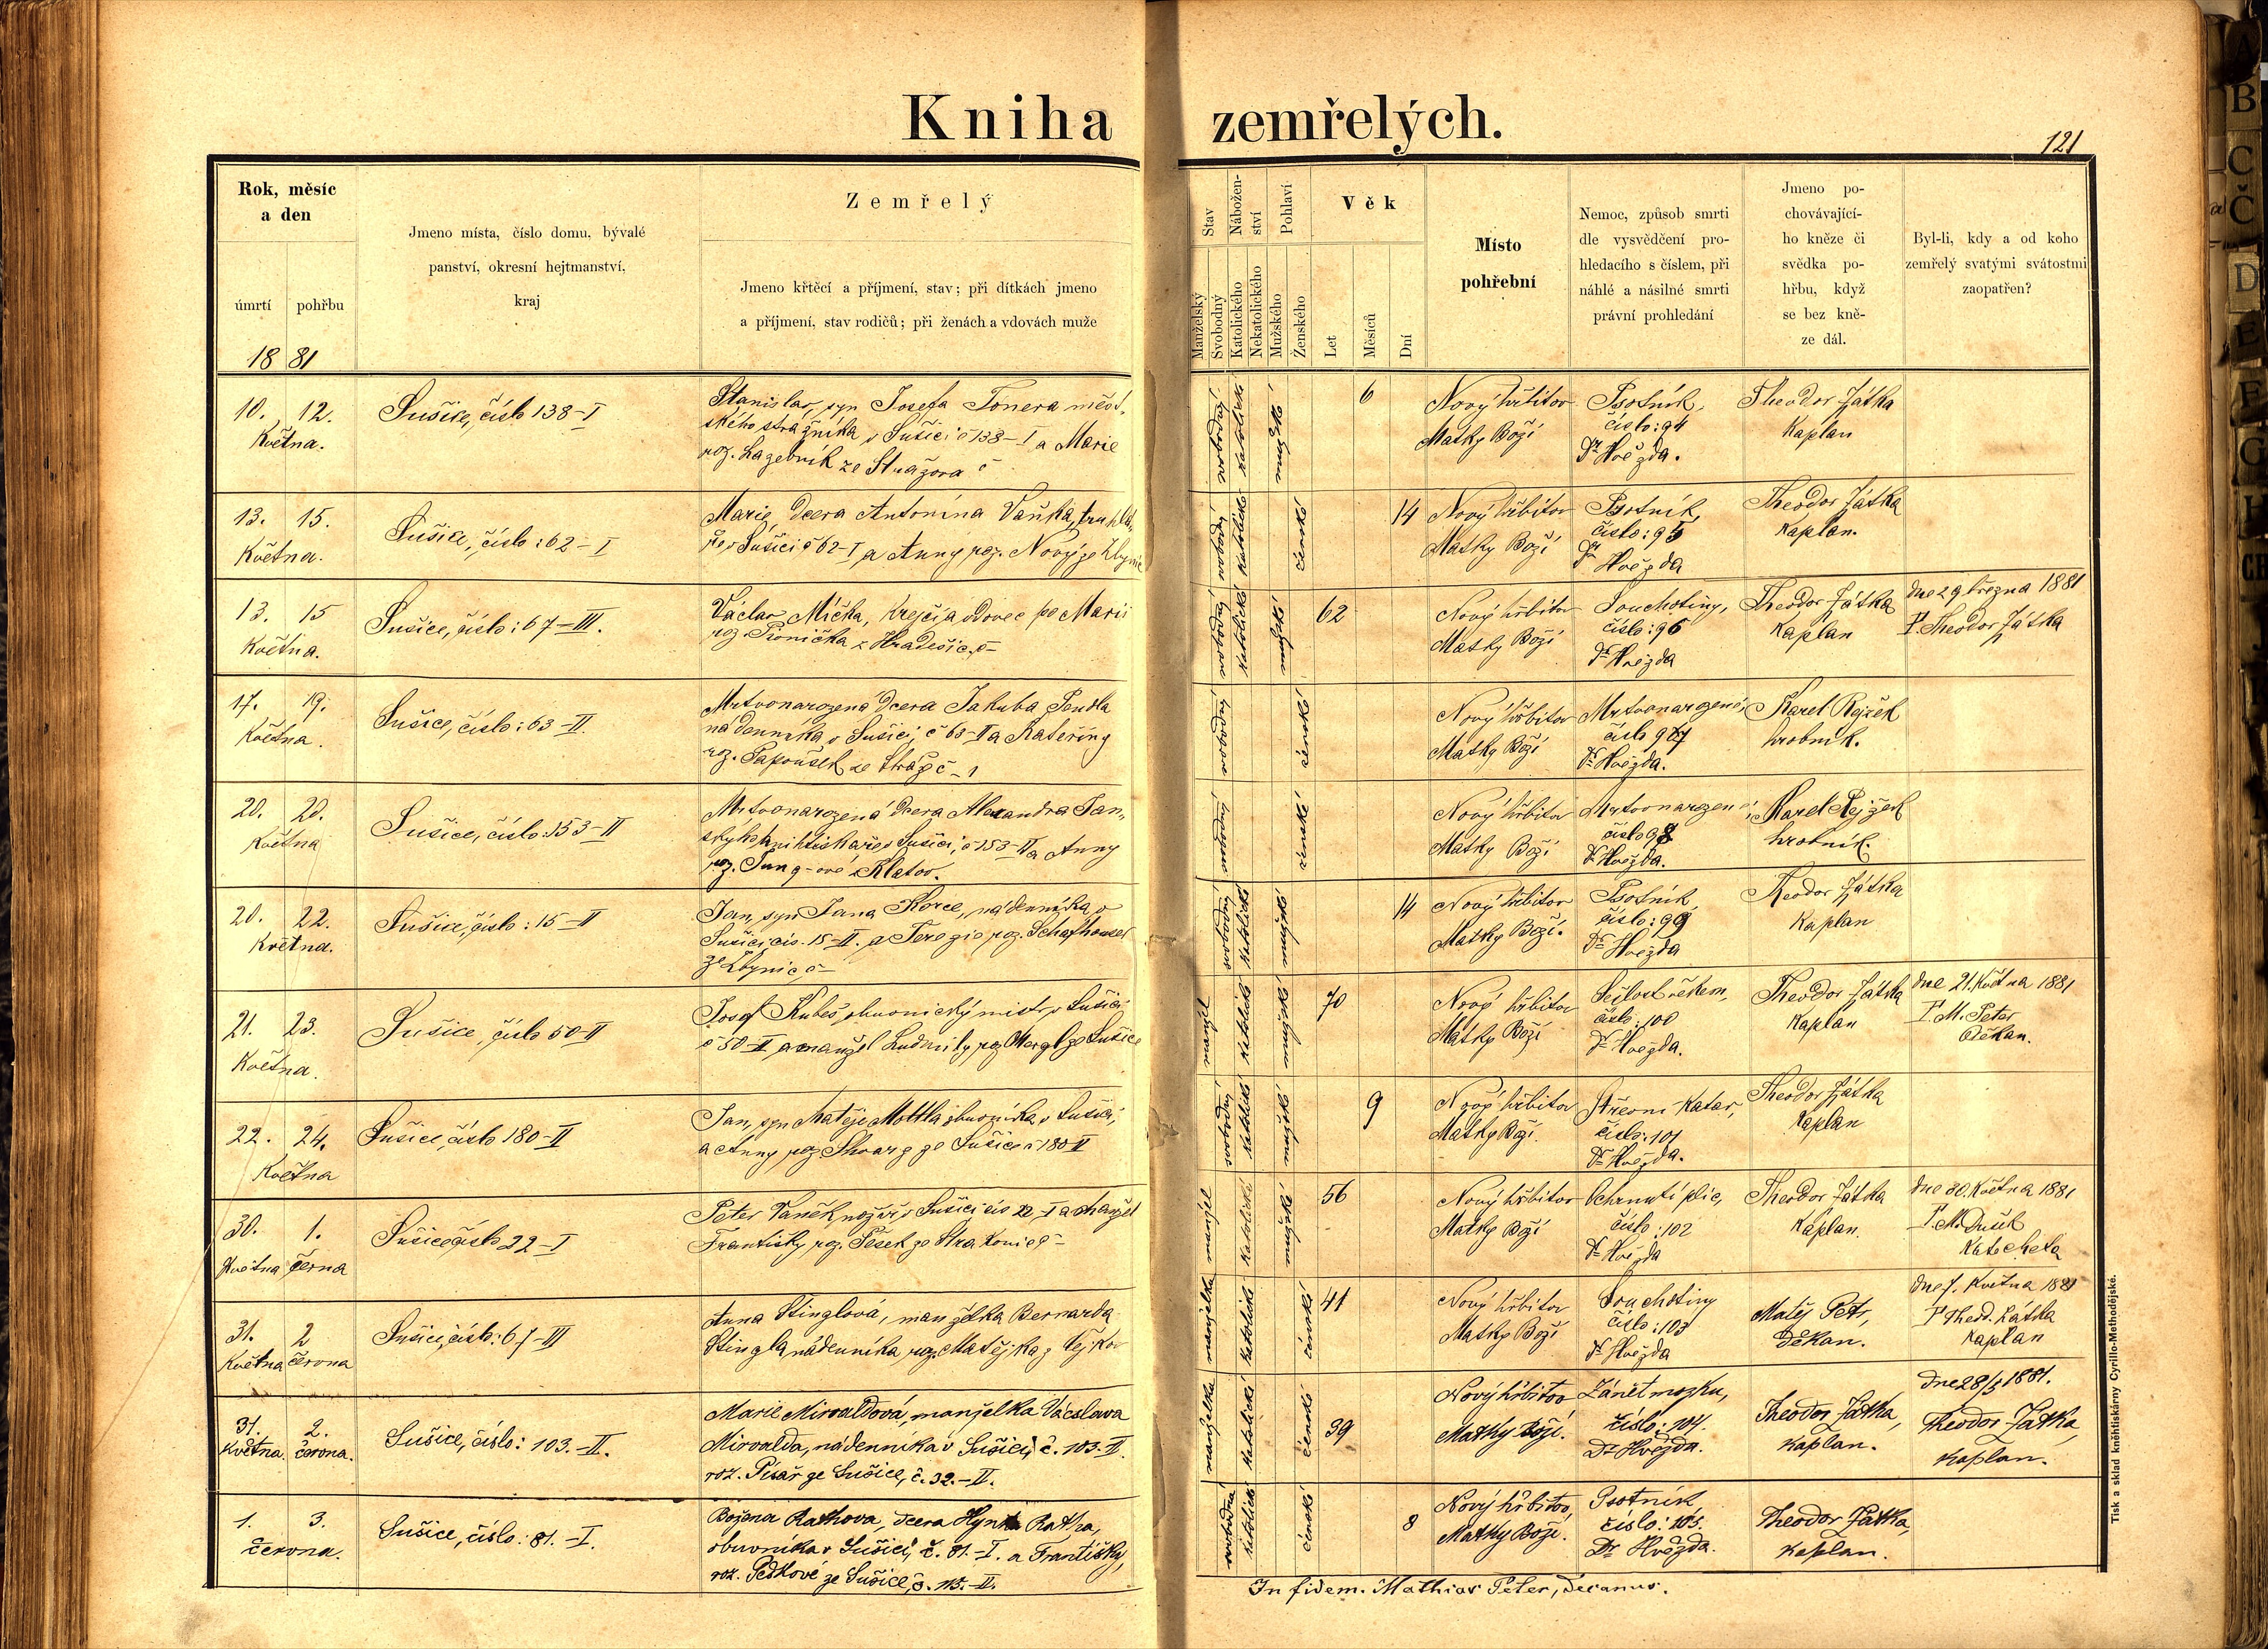 Kniha zemřelých.
121
Rok, měsíc
a den
úmrtí pohřbu
18 81
Jmeno místa, číslo domu, bývalé
panství, okresní hejtmanství,
kraj
Zemřelý
Jmeno křtěcí a příjmení, stav; při dítkách jmeno
a příjmení, stav rodičů; při ženách a vdovách muže
Stav
Manželský
Svobodný
Nábožen-
ství
Katolického
Nekatolického
Pohlaví
Mužského
Ženského
Věk
Let
Měsíců
Dní
Místo
pohřební
Nemoc, způsob smrti
dle vysvědčení pro-
hledacího s číslem, při
náhlé a násilné smrti
právní prohledání
Jmeno po-
chovávající-
ho kněze či
svědka po-
hřbu, když
se bez kně-
ze dál.
Byl-li, kdy a od koho
zemřelý svatými svátostmi
zaopatřen?
10. 12.
Května.
Sušice, číslo 138-I
Stanislav, syn Josefa Tonera měst-
ského strážníka v Sušici č 138-I a Marie
roz. Lazebník ze Strážova č
svobodný katolické mužské
6
Nový hřbitov
Matky Boží
Psotník,
číslo: 94
Dr Hvězda.
Theodor Játka
Kaplan
13. 15.
Května.
Sušice, číslo: 62-I
Marie, dcera Antonína Vaňka, truhlá-
ře v Sušici č 62-I a Anny roz. Nový ze Zbynic
svobodný katolické ženské
14
Nový hřbitov
Matky Boží
Psotník,
číslo: 95
Dr Hvězda
Theodor Játka
Kaplan.
13. 15
Května.
Sušice, číslo: 67-III.
Václav Míčka, Krejčí a vdovec po Marii
roz. z Hradešic, č-
svobodný katolické mužské
62
Nový hřbitov
Matky Boží
Souchotiny,
číslo: 96
Dr Hvězda
Theodor Játka
Kaplan
dne 29 března 1881
P. Theodor Játka
17. 19.
Května.
Sušice, číslo: 63-II.
Mrtvonarozená dcera Jakuba Pendla
nádenníka v Sušici, č 63-II a Kateřiny
roz. Papoušek ze Stráže č-1
svobodný ženské
Nový hřbitov
Matky Boží
Mrtvonarozené,
číslo 97
Dr Hvězda.
Karel Rejžek
hrobník.
20. 20.
Května
Sušice, číslo: 153-II
Mrtvonarozená dcera Alexandra Jan-
ského knihtiskaře v Sušici, č 153-II a Anny
roz. Jung-ové z Klatov.
svobodný ženské
Nový hřbitov
Matky Boží
Mrtvonarozené,
číslo 98
Dr Hvězda.
Karel Rejžek
hrobník.
20. 22.
Května.
Sušice, číslo: 15-II
Jan, syn Jana Korce, nádenníka v
Sušici čís. 15-II. a Terezie roz. Schafhauser
ze Zbynic, č-
svobodný katolické mužské
14
Nový hřbitov
Matky Boží.
Psotník,
číslo: 99
Dr Hvězda
Theodor Játka
Kaplan
21. 23.
Května.
Sušice, číslo 50-II
Josef Kubeš, obuvnický mistr v Sušici
č 50-II, a manžel Ludmily, roz. Mergl ze Sušice
manžel katolické mužské
70
Nový hřbitov
Matky Boží
Sešlost věkem,
číslo: 100
Dr Hvězda.
Theodor Játka
Kaplan
dne 21. Května 1881
P. M. Peter
Děkan.
22. 24.
Května
Sušice, číslo 180-II
Jan, syn Matěje Mottla obuvníka v Sušici,
a Anny roz. Švarz ze Sušice č 180-II
svobodný katolické mužské
9
Nový hřbitov
Matky Boží.
Střevní Katar,
číslo: 101
Dr Hvězda.
Theodor Játka
Kaplan
30. 1.
Května června
Sušice, číslo 22-I
Peter Vaněk, nožíř v Sušici čís 22-I a manžel
Františky roz. Pešek ze Strakonic č-
manžel katolické mužské
56
Nový hřbitov
Matky Boží
Ochrnutí plic,
číslo: 102
Dr Hvězda
Theodor Játka
Kaplan.
dne 30. Května 1881
P. M. Dušek
Katecheta
31. 2
Května června
Sušice, číslo: 67-III
Anna Stinglová, manželka Bernarda
Stingla nádenníka, roz. Matějka z
manželka katolické ženské
41
Nový hřbitov
Matky Boží
Souchotiny
číslo: 103
Dr Hvězda
Matěj Petr,
Děkan.
dne 7. Května 1881
P Theod. Játka
Kaplan
31. 2.
Května. června.
Sušice, číslo: 103.-II.
Marie Mirvaldová, manželka Václava
Mirvalda, nádenníka v Sušici, č. 103.-II.
roz. Písař ze Sušice, č. 32.-II.
manželka katolické ženské
39
Nový hřbitov
Matky Boží.
Zánět mozku,
číslo: 104.
Dr Hvězda.
Theodor Játka,
Kaplan.
Dne 28/5 1881.
Theodor Játka,
Kaplan.
1. 3.
června.
Sušice, číslo: 81.-I.
Božena Rathova, dcera Hynka Ratha,
obuvníka v Sušici, č. 81.-I. a Františky,
roz. Pedkové ze Sušice, č. 115.-II.
svobodná katolické ženské
8
Nový hřbitov,
Matky Boží.
Psotník,
číslo: 105.
Dr Hvězda.
Theodor Játka,
Kaplan.
In fidem. Mathias Peter, decanus.
Tisk a sklad kněhtiskárny Cyrillo-Methodějské.
A
B
C
Č
D
E
F
G
H
CH